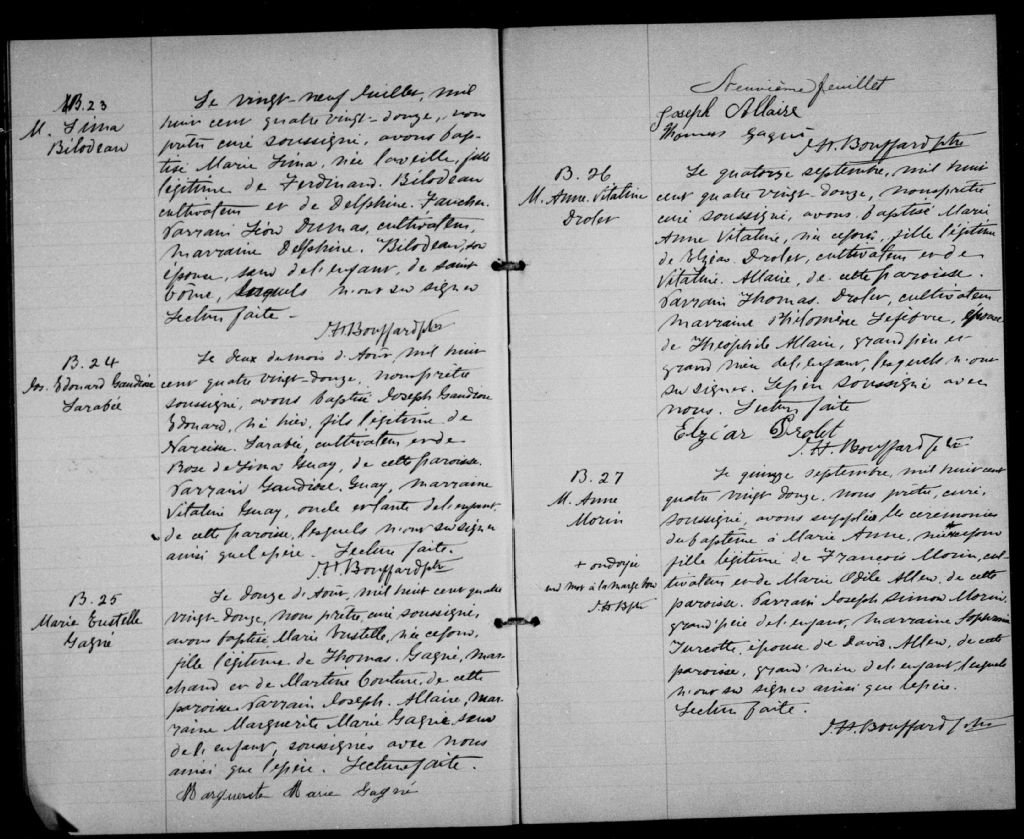 B.23
M. Lima
Bilodeau
Le vingt-neuf Juillet, mil
huit cent quatre vingt-douze, nous
prêtre curé soussigné, avons bap-
tisé Marie Lima, née la veille, fille
légitime de Ferdinand Bilodeau
cultivateur et de Delphine Faucher.
Parrain Léon Dumas, cultivateur,
marraine Delphine Bilodeau, son
épouse, sœur de l'enfant, de Saint
Côme, lesquels n'ont su signer
Lecture faite -
J.H. Bouffard ptre
B.24
Jos. Edouard Gaudiose
Larabée
Le deux du mois d'Août mil huit
cent quatre vingt-douze, nous prêtre
soussigné, avons baptisé Joseph Gaudiose
Edouard, né hier, fils légitime de
Narcisse Larabée, cultivateur et de
Rose de Lima Guay, de cette paroisse.
Parrain Gaudiose Guay, marraine
Vitaline Guay, oncle et tante de l'enfant
de cette paroisse, lesquels n'ont su signer
ainsi que le père. Lecture faite.
J.H. Bouffard ptre
B.25
Marie Eustelle
Gagné
Le douze d'Août, mil huit cent quatre
vingt-douze, nous prêtre, curé soussigné,
avons baptisé Marie Eustelle, née ce jour,
fille légitime de Thomas Gagné, mar-
chand et de Martine Couture, de cette
paroisse. Parrain Joseph Allaire, mar-
raine Marguerite Marie Gagné, sœur
de l'enfant, soussignés avec nous
ainsi que le père. Lecture faite.
Marguerite Marie Gagné
Neuvième feuillet
Joseph Allaire
Thomas Gagné
J.H. Bouffard ptre
B.26
M. Anne Vitaline
Drolet
Le quatorze septembre, mil huit
cent quatre vingt-douze, nous prêtre
curé soussigné, avons baptisé Marie
Anne Vitaline, née ce jour, fille légitime
de Elzéar Drolet, cultivateur et de
Vitaline Allaire, de cette paroisse.
Parrain Thomas Drolet, cultivateur
marraine Philomène Lefebvre, épouse
de Théophile Allaire, grand père et
grand mère de l'enfant, lesquels n'ont
su signer. Le père soussigné avec
nous. Lecture faite
Elzéar Drolet
J.H. Bouffard ptre
B.27
M. Anne
Morin
+ ondoyée
J.H.B. ptre
Le quinze septembre, mil huit cent
quatre vingt-douze, nous prêtre, curé,
soussigné, avons suppléé les cérémonies
du baptême à Marie Anne, née + ce jour
fille légitime de François Morin, cul-
tivateur et de Marie Odile Allen, de cette
paroisse. Parrain Joseph Simon Morin,
grand'père de l'enfant, marraine Sophronie
Turcotte, épouse de David Allen, de cette
paroisse, grand'mère de l'enfant, lesquels
n'ont su signer ainsi que le père.
Lecture faite.
J.H. Bouffard ptre